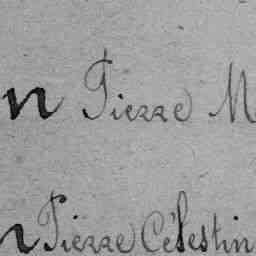 n Pierre M
n Pierre Célestin